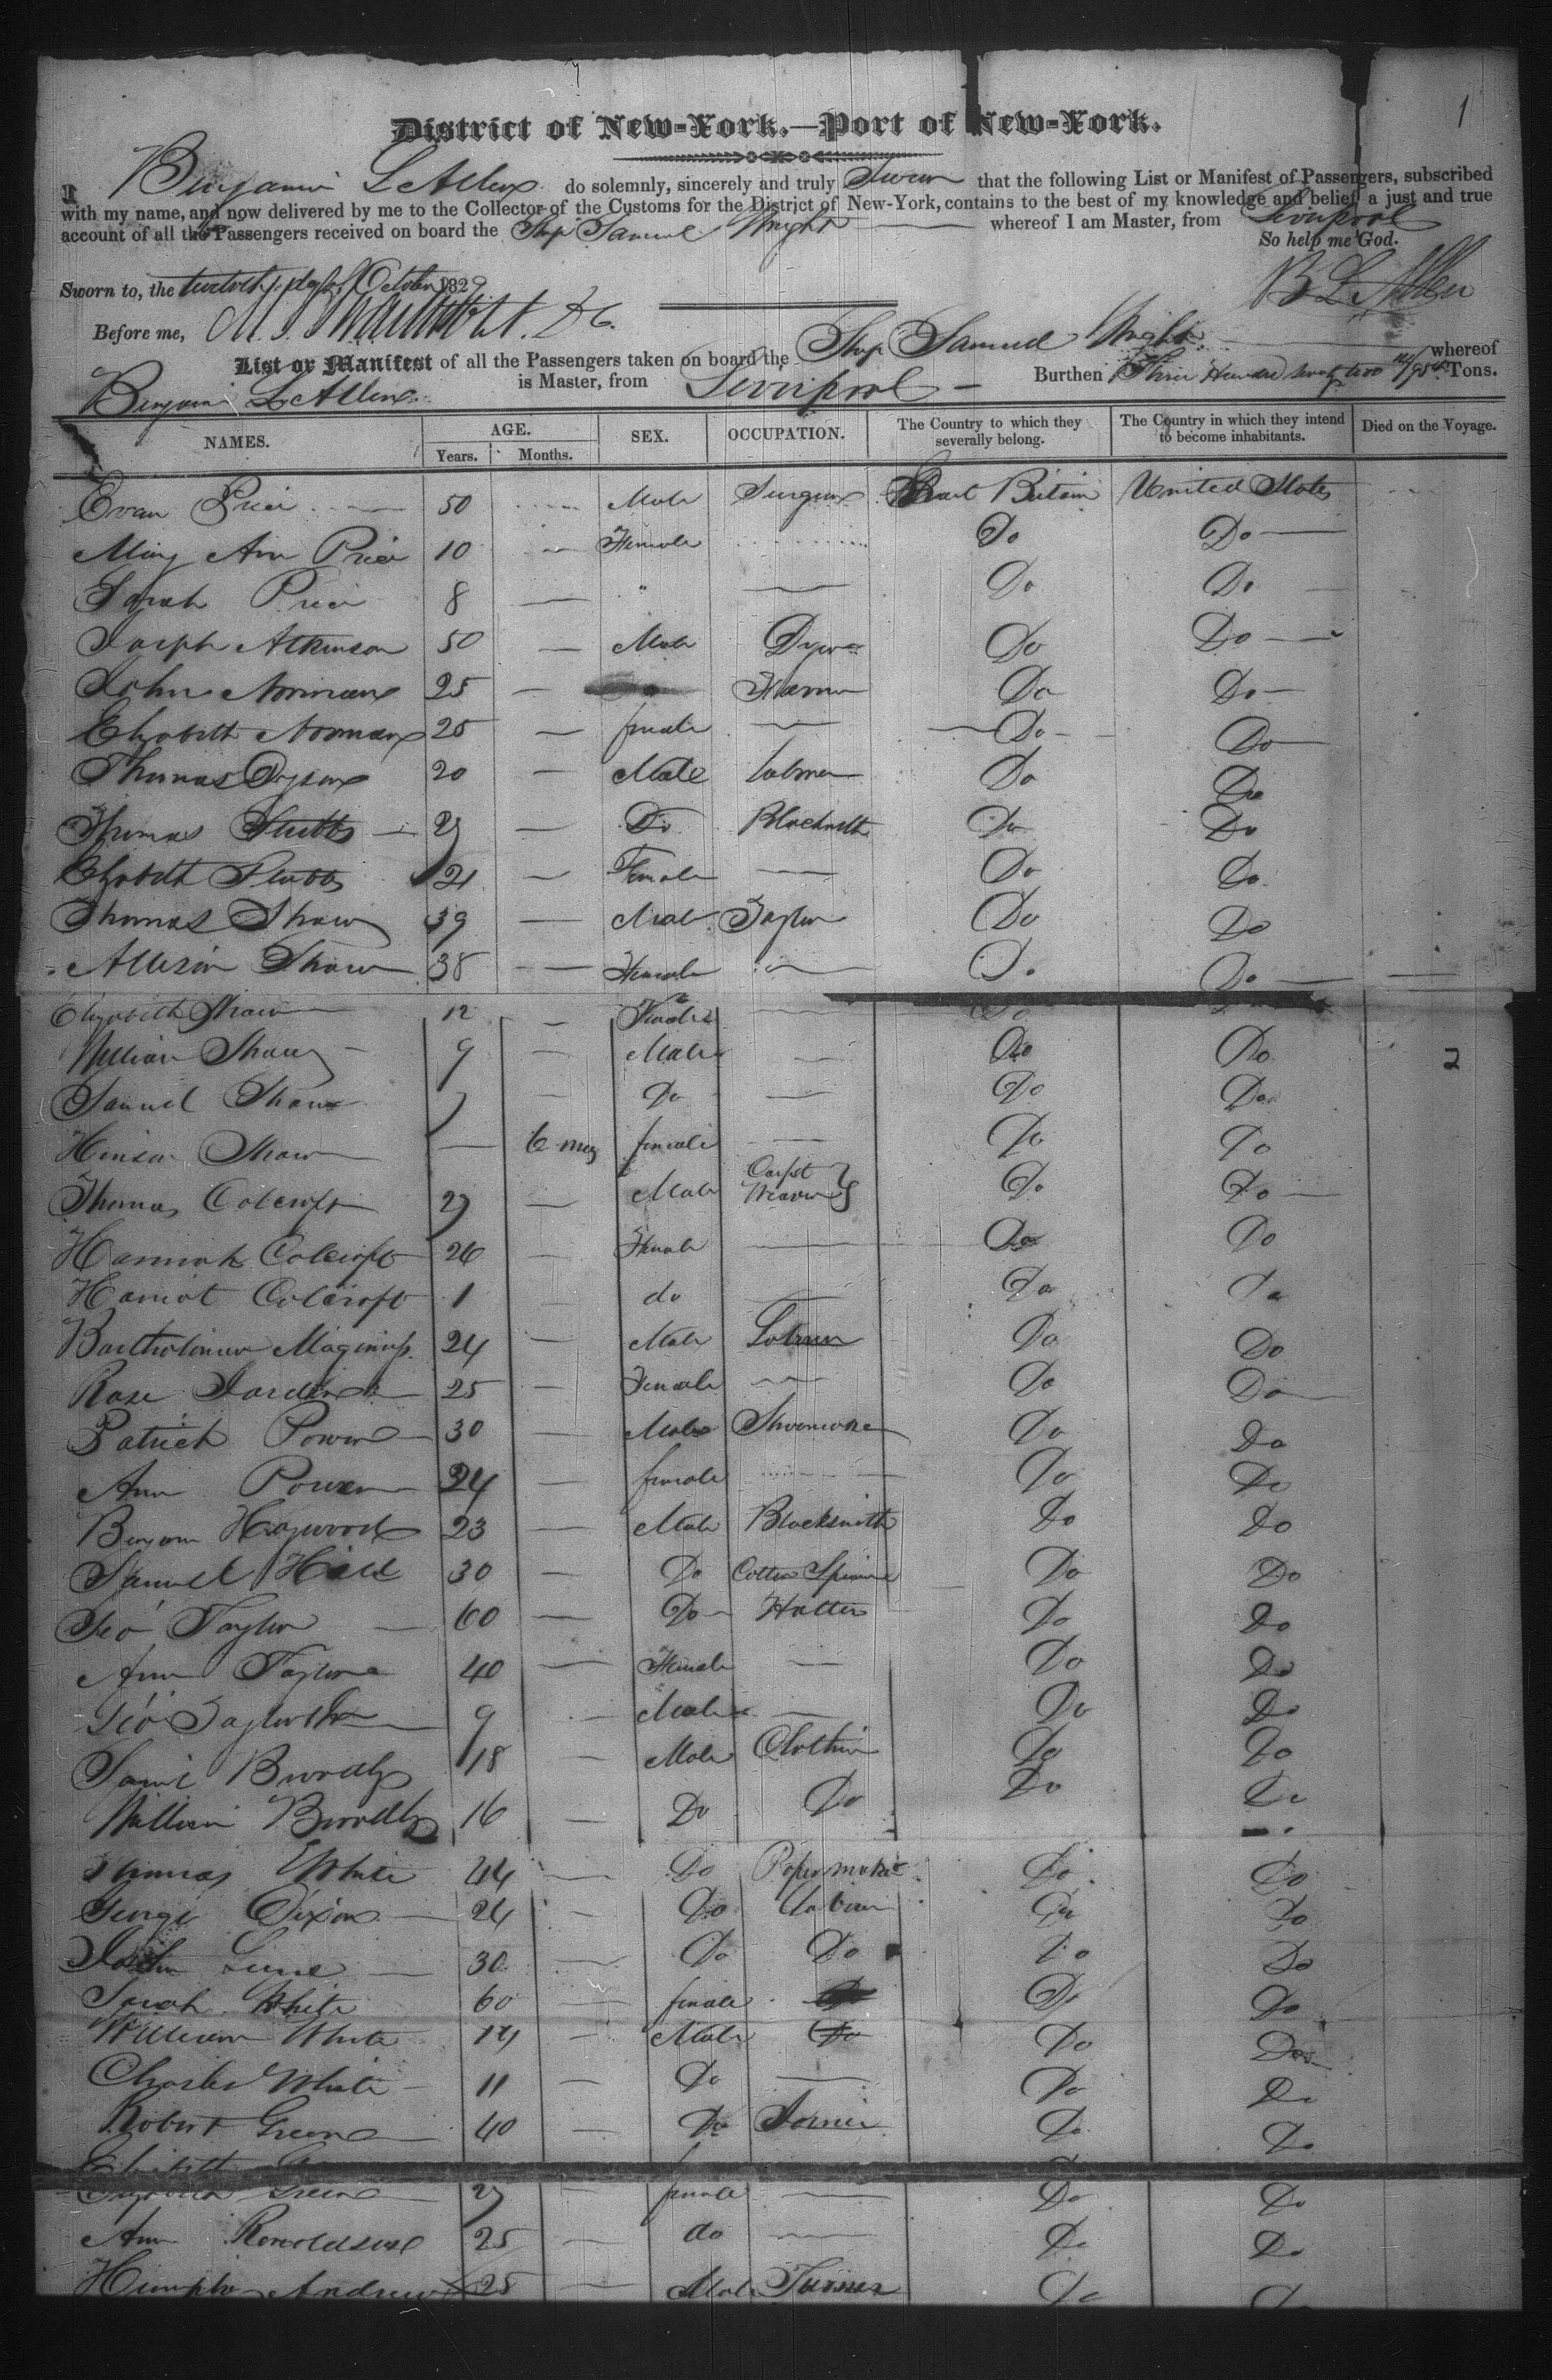 1
District of New-York.—Port of New-York.
I Benjamin L Allen do solemnly, sincerely and truly Swear that the following List or Manifest of Passengers, subscribed
with my name, and now delivered by me to the Collector of the Customs for the District of New-York, contains to the best of my knowledge and belief, a just and true
account of all the Passengers received on board the Ship Samuel Wright whereof I am Master, from Liverpool
So help me God.
Sworn to, the twelvth day of October 1829
B L Allen
Before me,
List or Manifest of all the Passengers taken on board the Ship Samuel Wright whereof
Benjamin L Allen is Master, from Liverpool Burthen Three Hundred Seventy two /95th Tons.
NAMES. AGE. SEX. OCCUPATION. The Country to which they severally belong. The Country in which they intend to become inhabitants. Died on the Voyage.
Years. Months.
Evan Price 50 Male Surgeon Great Britain United States
Mary Ann Price 10 Female Do Do
Sarah Price 8 " Do Do
Joseph Atkinson 50 Male Dyer Do Do
John Norman 25 Farmer Do Do
Elizabeth Norman 25 female Do Do
Thomas Dyson 20 Male Labrer Do Do
Thomas Stubbs 27 Do Blacksmith Do Do
Elizabeth Stubbs 21 Female Do Do
Thomas Shaw 39 Male Taylor Do Do
Allison Shaw 38 Female Do Do
Elizabeth Shaw 12 Female Do
William Shaw 9 Male Do Do
Samuel Shaw 7 Do Do Do
Shaw 6 mos female Do Do
Thomas Colcroft 27 Male Carpt Weaver Do Do
Hannah Colcroft 26 Female Do Do
Harriot Colcroft 1 do Do Do
Bartholimew Maginniss 24 Male Labrer Do Do
Rose 25 Female Do Do
Patrick Power 30 Male Shoemaker Do Do
Ann Power 24 female Do Do
Benjam Haywood 23 Male Blacksmith Do Do
Samuel Hall 30 Do Cotton Spinner Do Do
Geo Taylor 60 Do Hatter Do Do
Ann Taylor 40 Female Do Do
Geo Taylor Jr 9 Male Do Do
Saml Broadley 18 Male Clothier Do Do
William Broadley 16 Do Do Do Do
Thomas White 44 Do Paper maker Do Do
George Dixon 24 Do Labrer Do Do
30 Do Do Do Do
Sarah White 60 female Do Do
William White 14 Male Do Do Do
2
Charles White 11 Do Do Do
Robert Green 40 Do Do Do
Elizabeth Green 27 female Do Do
Ann Ronoldson 25 do Do Do
Andrew 25 Male Turner Do